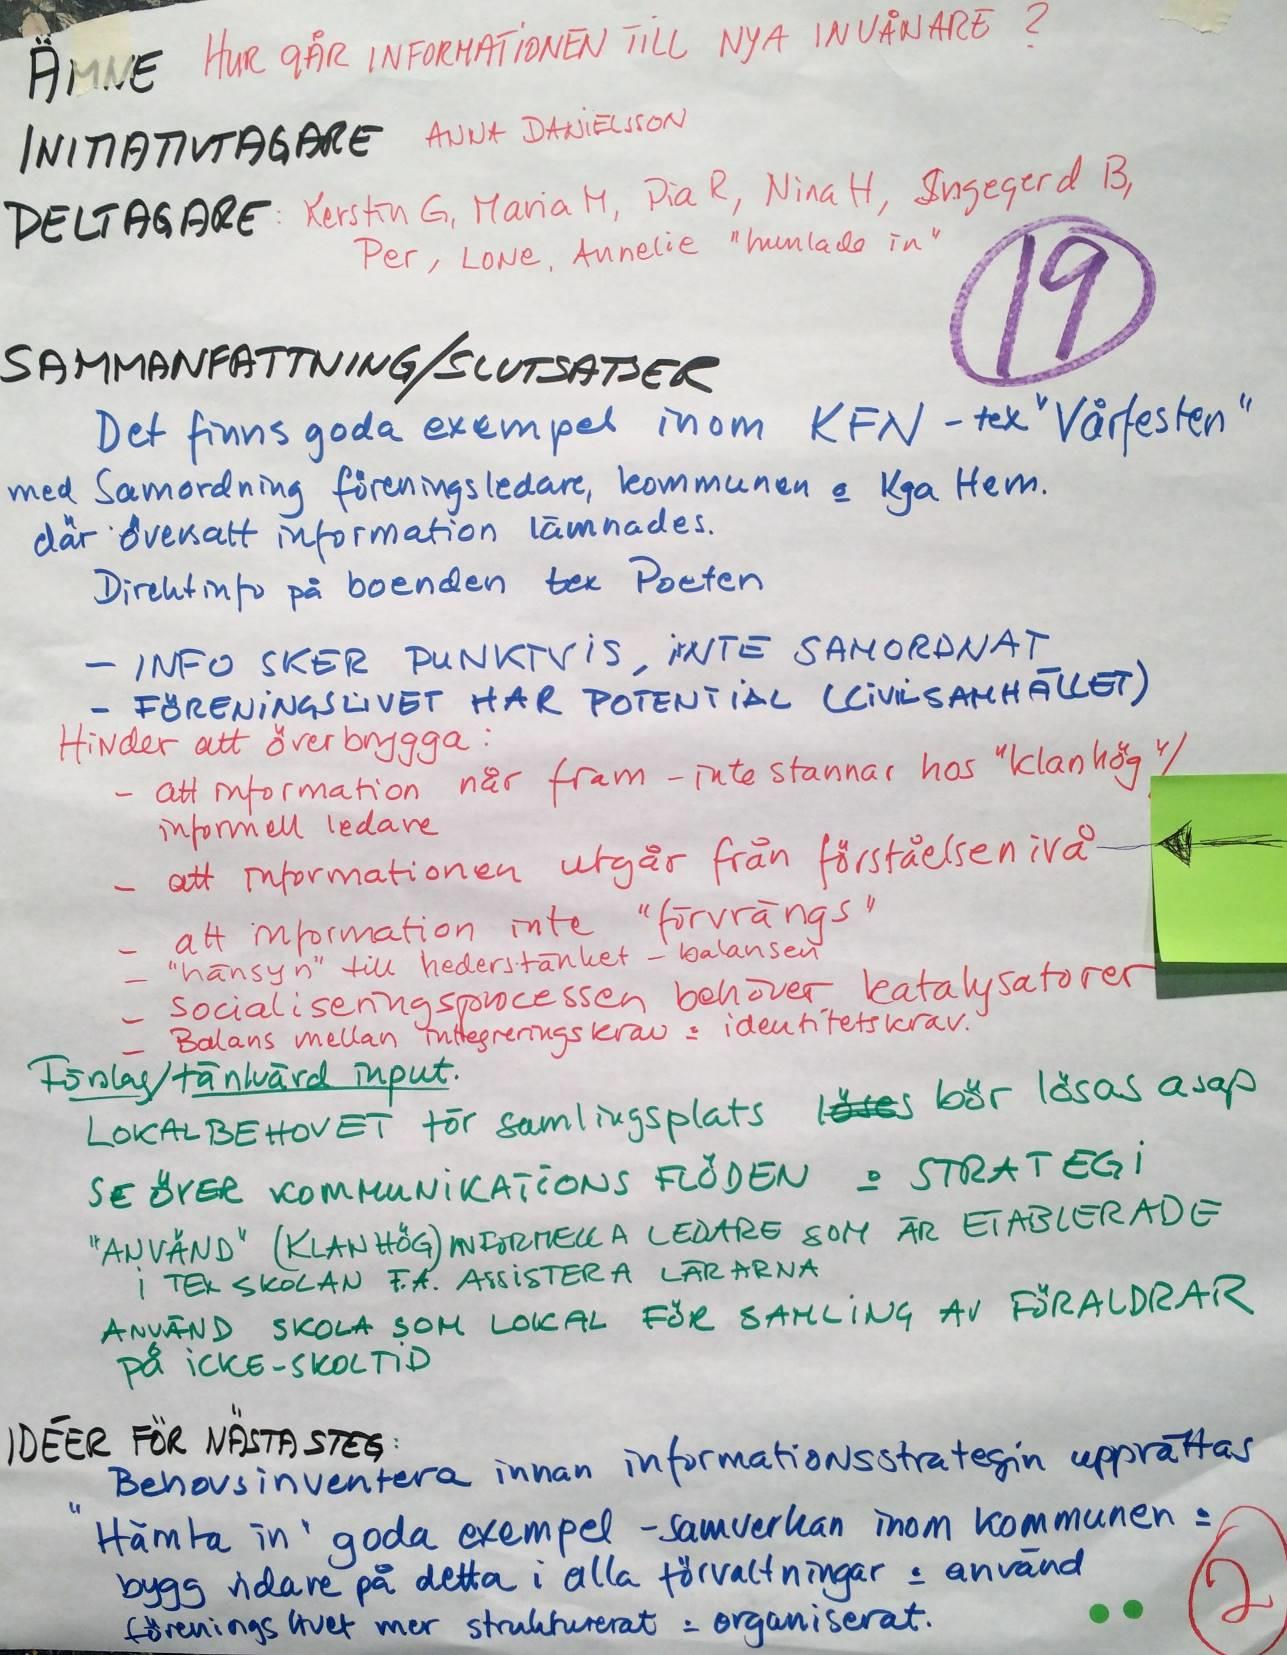 ÄMNE HUR GÅR INFORMATIONEN TILL NYA INVÅNARE ?
INITIATIVTAGARE ANNA DANIELSSON
DELTAGARE: Kerstin G, Maria M, Pia R, Nina H, Ingegerd B,
Per, LONE, Annelie "humlade in"
19
SAMMANFATTNING/SLUTSATSER
Det finns goda exempel inom KFN - tex "Vårfesten"
med Samordning föreningsledare, kommunen o Kga Hem.
där översatt information lämnades.
Direktinfo på boenden tex Poeten
- INFO SKER PUNKTVIS, INTE SAMORDNAT
- FÖRENINGSLIVET HAR POTENTIAL (CIVILSAMHÄLLET)
Hinder att överbrygga:
- att information når fram - inte stannar hos "klanhög"/
informell ledare
- att informationen utgår från förståelsenivå
- att information inte "förvrängs"
- "hänsyn" till hederstänket - balansen
- Socialiseringsprocessen behöver katalysatorer
- Balans mellan integreringskrav o identitetskrav.
Förslag/tänkvärd input.
LOKALBEHOVET för samlingsplats löses bör lösas asap
SE ÖVER KOMMUNIKATIONSFLÖDEN o STRATEGI
"ANVÄND" (KLANHÖG) INFORMELLA LEDARE SOM ÄR ETABLERADE
I TEX SKOLAN F.A. ASSISTERA LÄRARNA
ANVÄND SKOLA SOM LOKAL FÖR SAMLING AV FÖRÄLDRAR
PÅ ICKE-SKOLTID
IDÉER FÖR NÄSTA STEG:
Behovsinventera innan informationsstrategin upprättas
"Hämta in" goda exempel - samverkan inom kommunen o
bygg vidare på detta i alla förvaltningar o använd
föreningslivet mer strukturerat o organiserat.
2